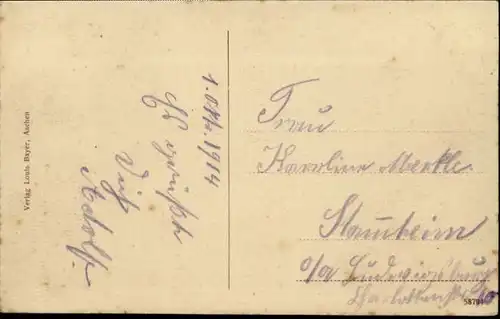 Verlag Louis Bayer, Aachen
1. Okt. 1914
Es grüßt
Dich
Adolf
Frau
Karoline Merkle
Stammheim
O/A Ludwigsburg
58791